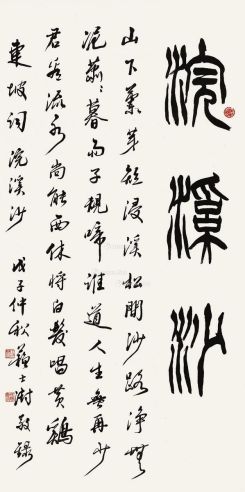 浣溪沙
山下蘭芽短浸溪松間沙路淨無
泥蕭〻暮雨子規啼誰道人生無再少
君看流水尚能西休將白髮唱黃鷄
東坡詞浣溪沙
戊子仲秋蘇士澍敬錄